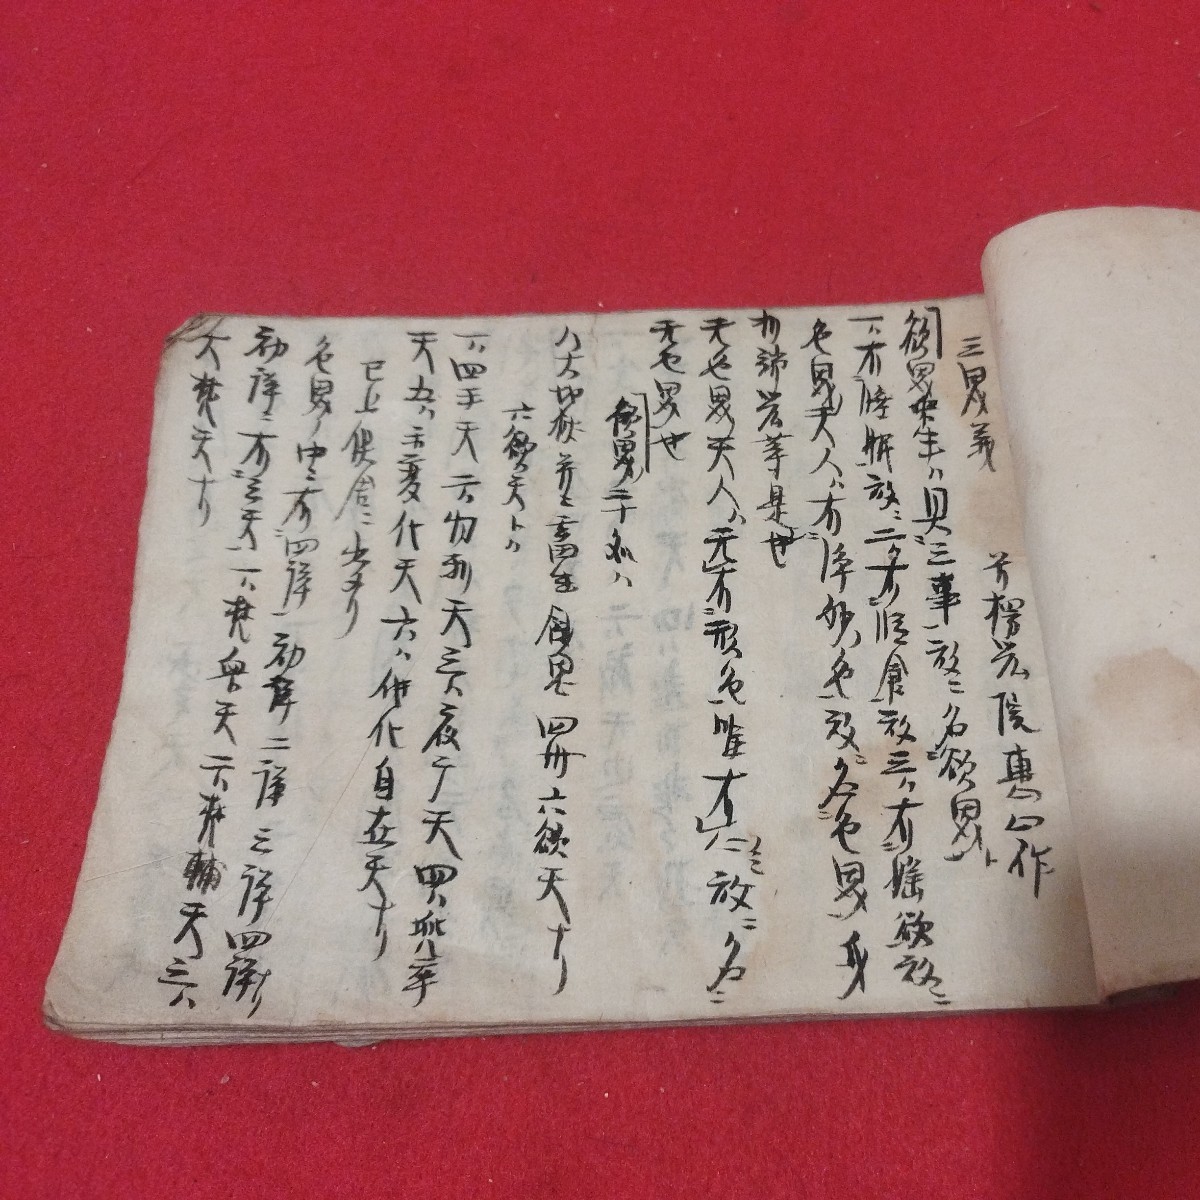 三界義
首楞嚴院惠心作
欲界衆生ハ具三事故ニ名欲界ト
一ハ有睡眠故ニ二ハ有段食故三ハ有婬欲故ニ
色界天人ハ有淨妙色故ニ名色界身
形端嚴等是也
无色界天人ハ无有形色唯有心故ニ名ニ
无色界也
欲界二十処ハ
八大地獄并ニ畜生餓鬼四州六欲天ナリ
六欲天ト
一ハ四王天二ハ忉利天三ハ夜广天四ハ兜率
天五ハ樂変化天六ハ他化自在天ナリ
已上倶舎ニ出タリ
色界ノ中ニ有四禅一初禅二禅三禅四禅ナリ
初禅ニ有三天一ハ梵衆天二ハ梵輔天三ハ
大梵天ナリ